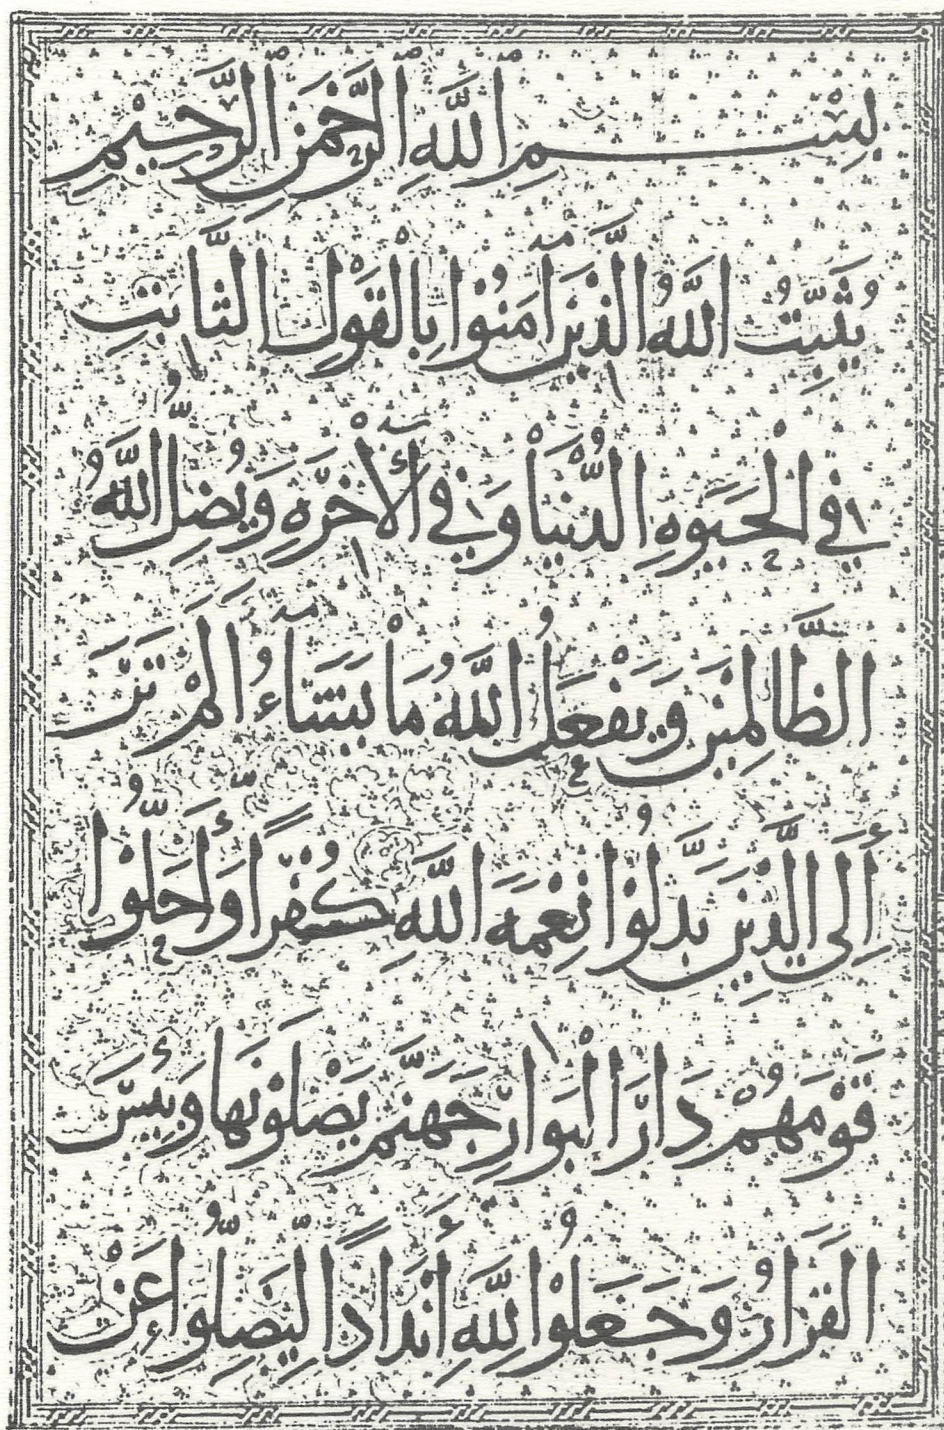 بِسْمِ اللَّهِ الرَّحْمَنِ الرَّحِيمِ
يُثَبِّتُ اللَّهُ الَّذِينَ آمَنُوا بِالْقَوْلِ الثَّابِتِ
فِي الْحَيَوهِ الدُّنْيَا وَفِي الْأَخِرَهِ وَيُضِلُّ اللَّهُ
الظَّالِمِينَ وَيَفْعَلُ اللَّهُ مَا يَشَاءُ أَلَمْ تَرَ
إِلَى الَّذِينَ بَدَّلُوْا نِعْمَهَ اللَّهِ كُفْرًا وَأَحَلُّوْا
قَوْمَهُمْ دَارَ الْبَوَارِ جَهَنَّمَ يَصْلَوْنَهَا وَبِئْسَ
الْقَرَارُ وَجَعَلُوْا لِلَّهِ أَنْدَادًا لِيُضِلُّوا عَنْ